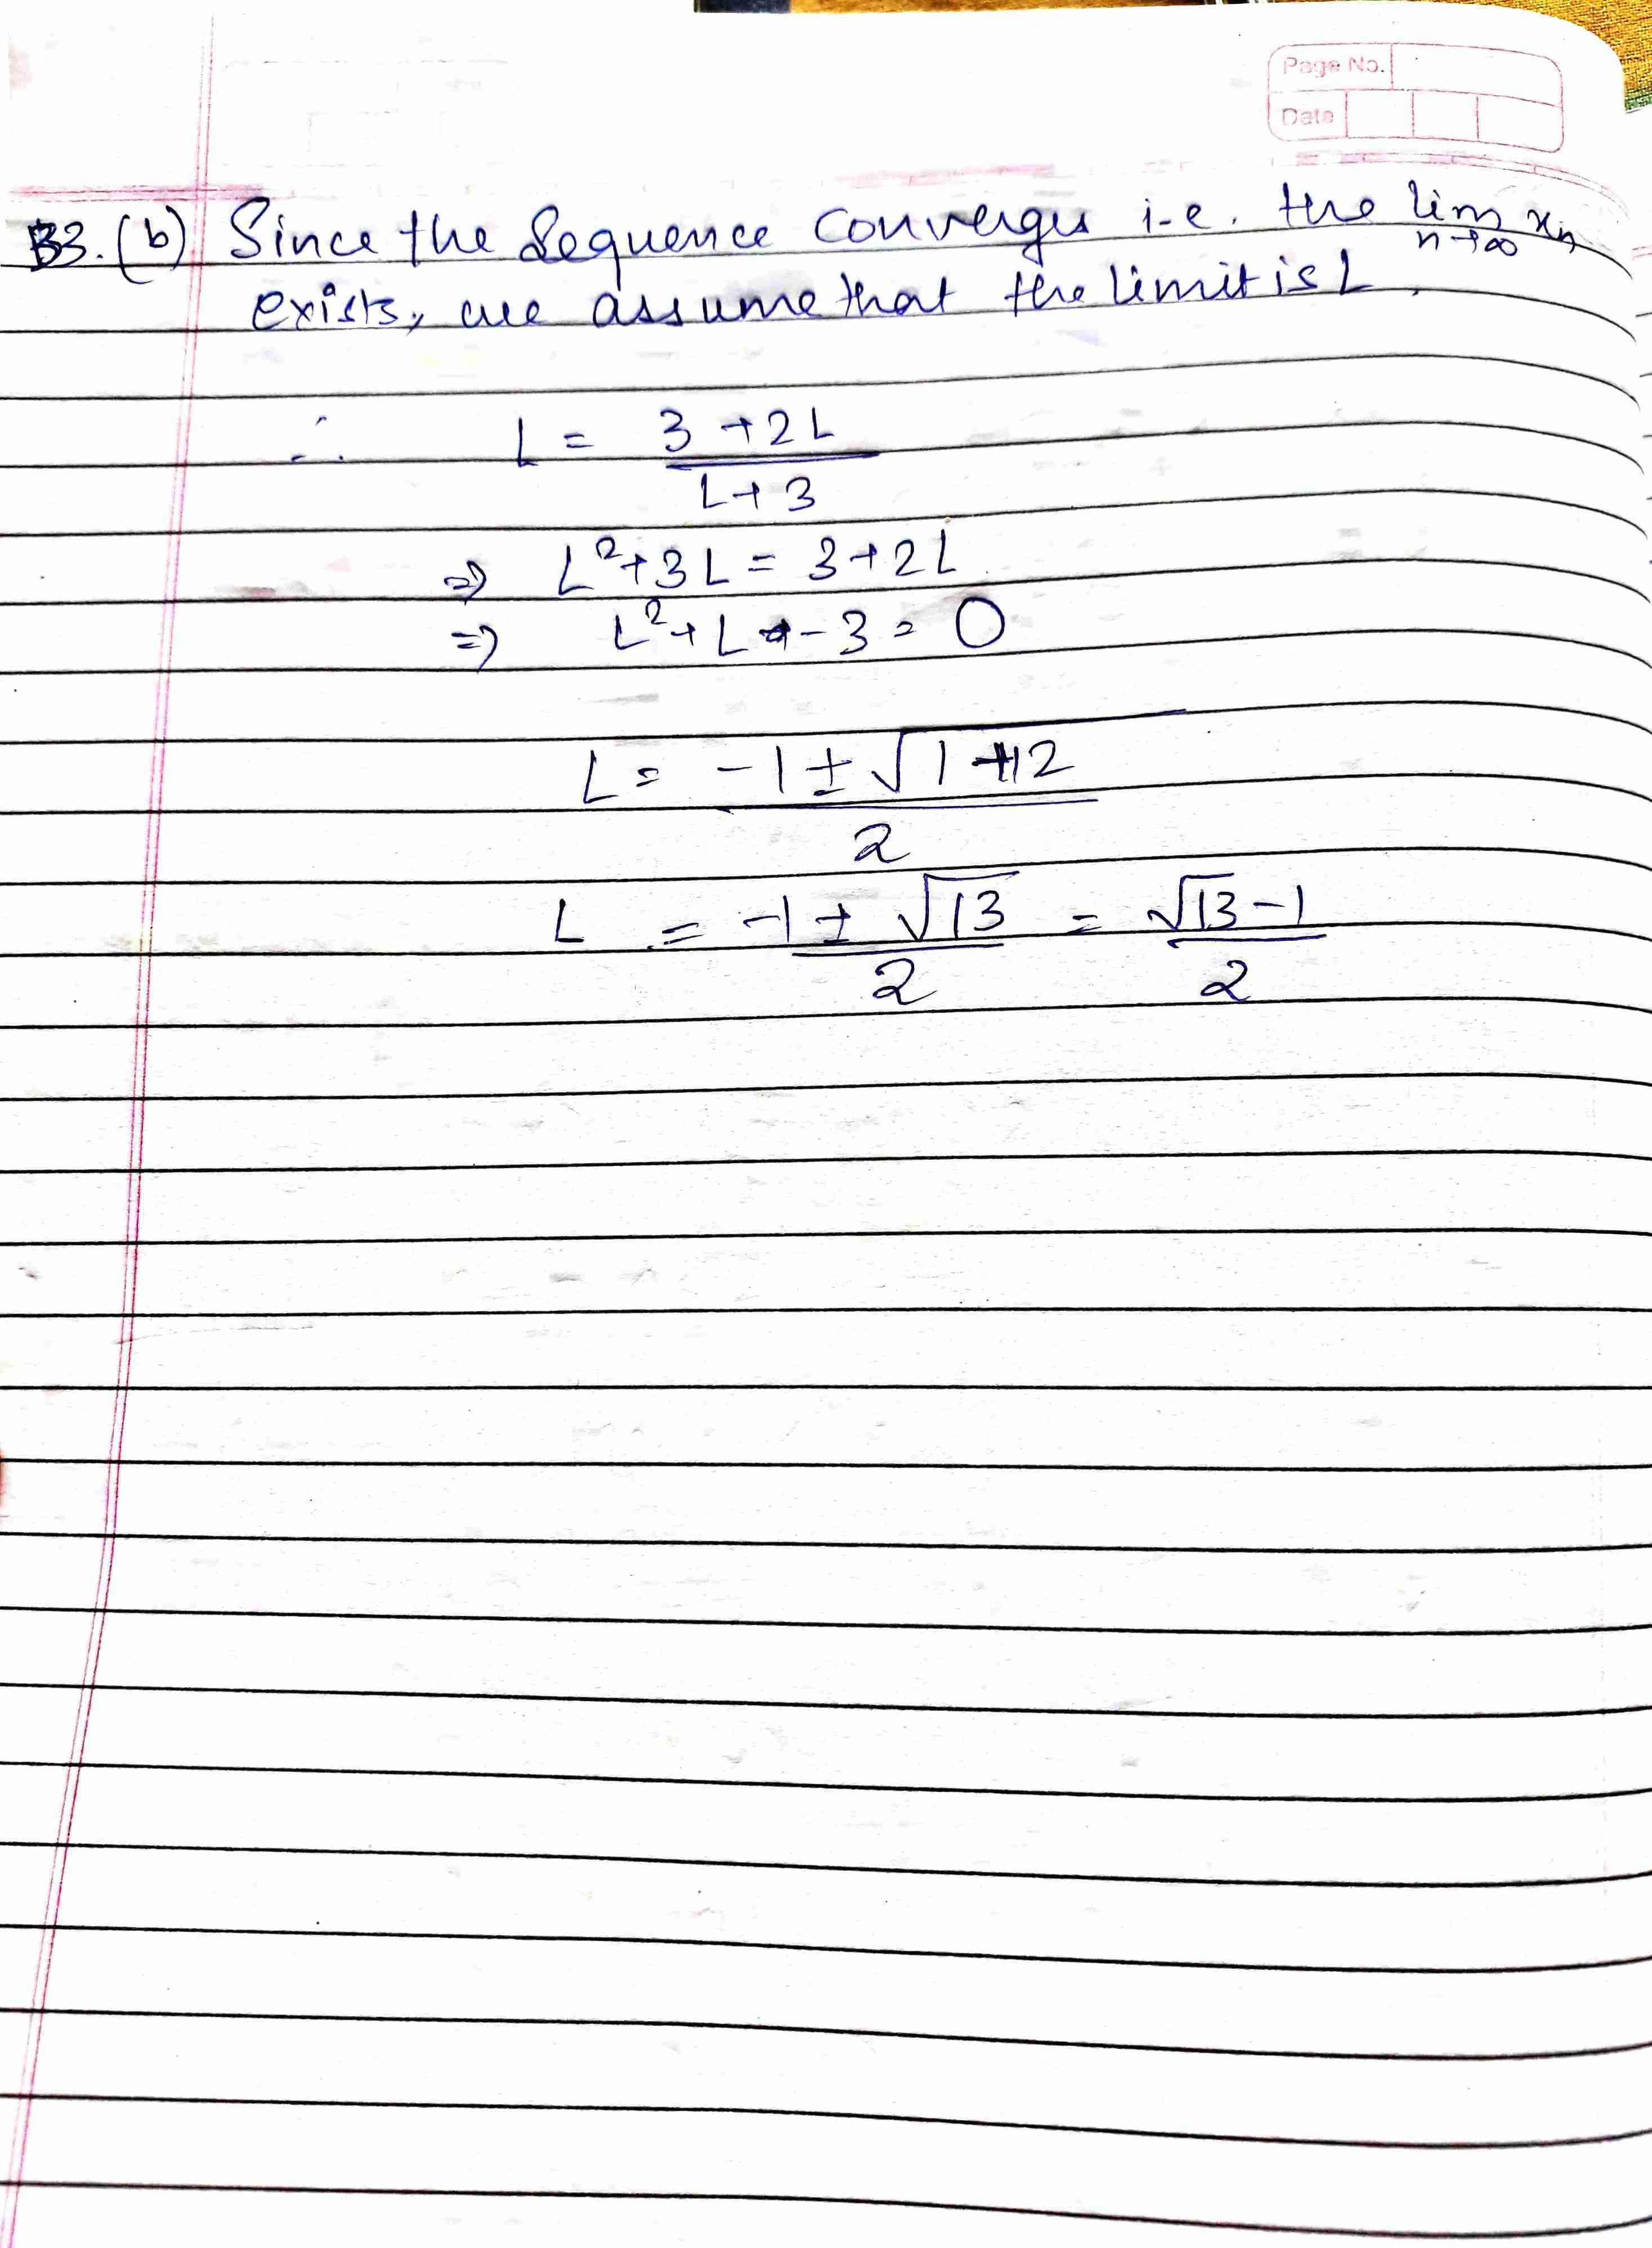 Page No.
Date
B3. (b) Since the sequence converges i.e. the lim x_n
n→∞
exists, we assume that the limit is L.
∴ L = 3 + 2L
L + 3
⇒ L² + 3L = 3 + 2L
⇒ L² + L - 3 = 0
L = -1 ± √1 + 12
2
L = -1 ± √13 = √13 - 1
2 2